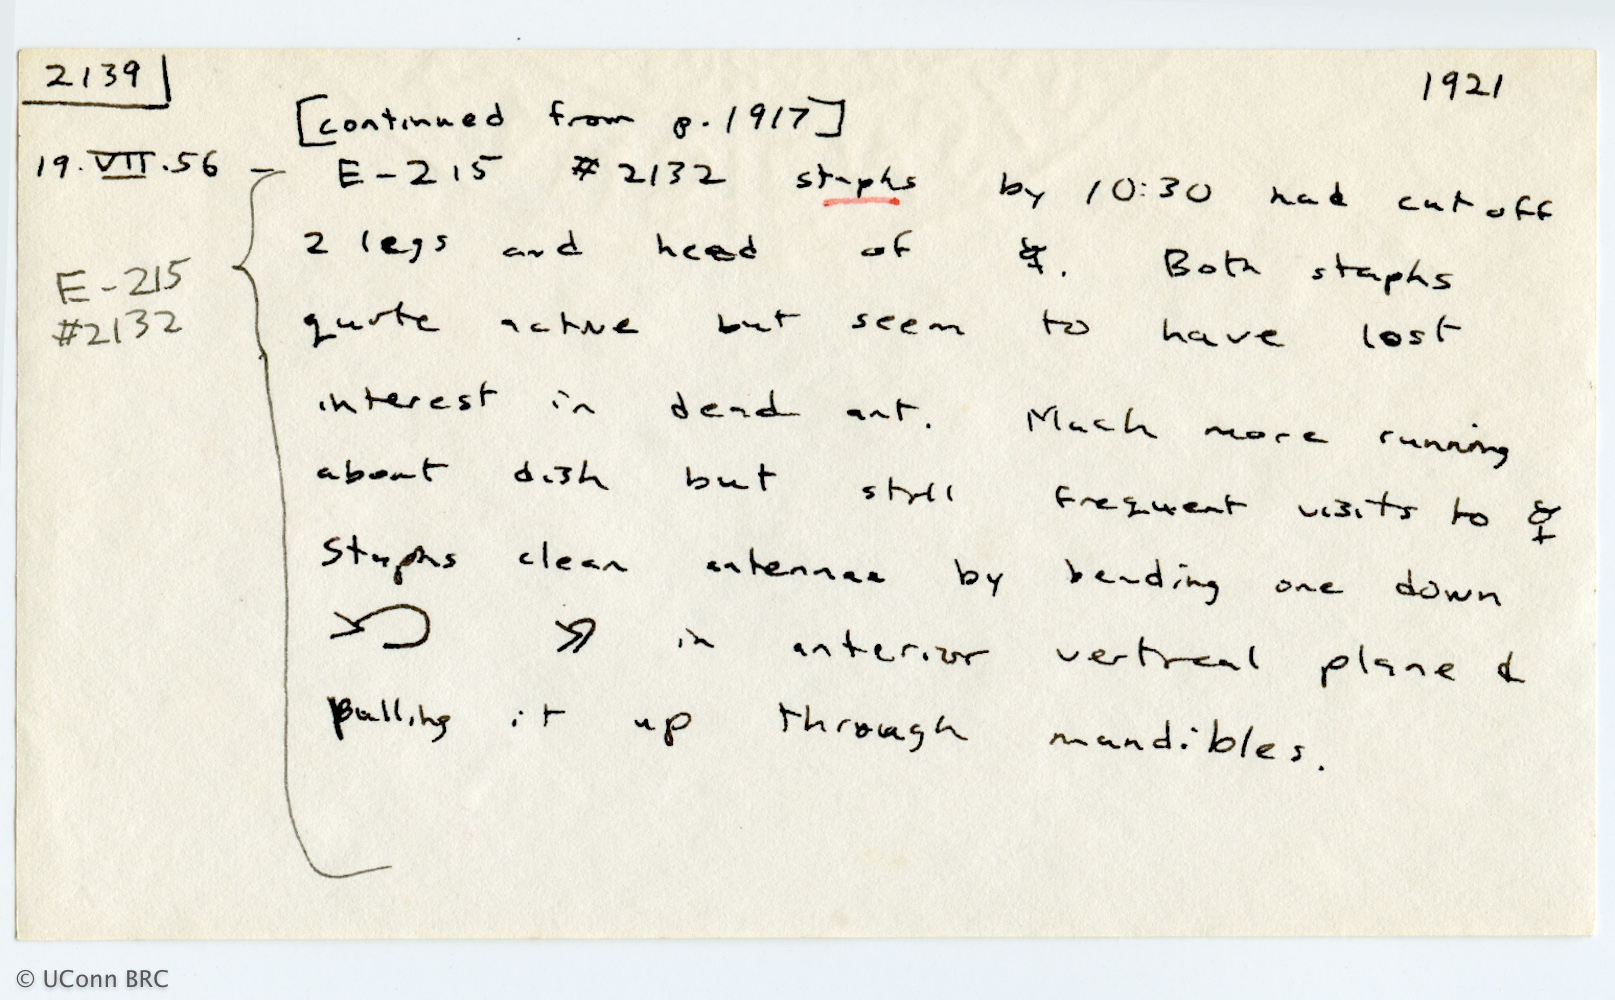 2139
1921
[continued from p. 1917]
19.VII.56 — E-215 #2132 staphs by 10:30 had cut off
2 legs and head of ☿. Both staphs
E-215
#2132
quite active but seem to have lost
interest in dead ant. Much more running
about dish but still frequent visits to ☿
Staphs clean antennae by bending one down
in anterior vertical plane &
pulling it up through mandibles.
© UConn BRC